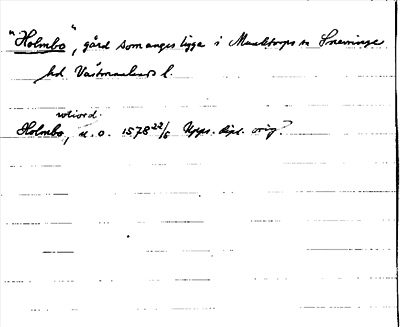 "Holmbo", gård som anges ligga i Munktorps sn Snevringe
hd Västmanlands l.
wtiord.
Holmbo, u. o. 1578 22/6 Upps. dipl. orig?